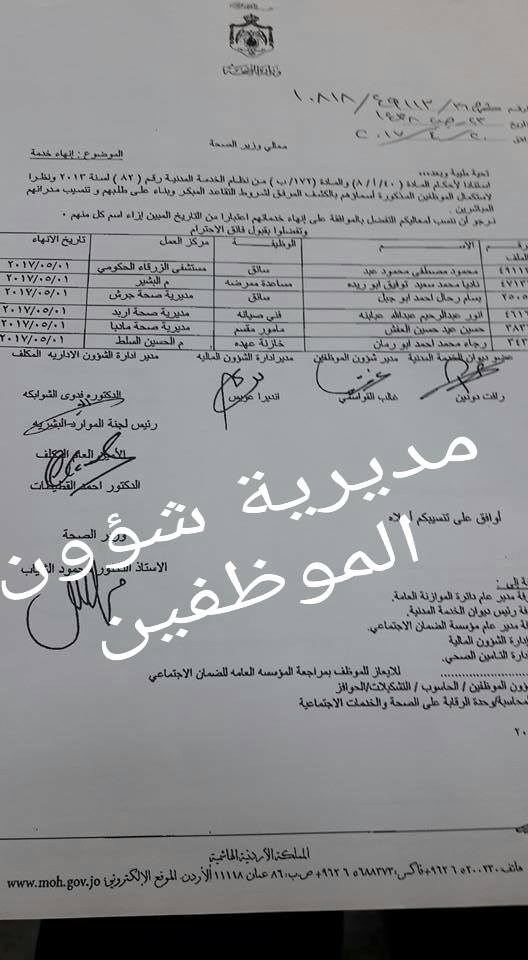 وزارة الصحة
الرقم
التاريخ
معالي وزير الصحة
الموضوع : إنهاء خدمة
تحية طيبة وبعد...
استنادا لأحكام المادة ( ٨/أ/٤٠ ) والمادة (١٧٢/ب) من نظام الخدمة المدنية رقم ( ٨٢ ) لسنة ٢٠١٣ ونظرا
لاستكمال الموظفين المذكورة أسماؤهم بالكشف المرفق لشروط التقاعد المبكر وبناء على طلبهم و تنسيب مدرائهم
المباشرين .
نرجو أن ننسب لمعاليكم التفضل بالموافقة على إنهاء خدماتهم اعتبارا من التاريخ المبين إزاء اسم كل منهم .
وتفضلوا بقبول فائق الاحترام
الملف الاسم الوظيفة مركز العمل تاريخ الانهاء
محمود مصطفى محمود عبد سائق مستشفى الزرقاء الحكومي ٢٠١٧/٠٥/٠١
ناديا محمد سعيد توفيق ابو ريده مساعدة ممرضه م البشير ٢٠١٧/٠٥/٠١
بسام رحال احمد ابو جبل سائق مديرية صحة جرش ٢٠١٧/٠٥/٠١
انور عبدالرحيم عبدالله عبابنه فني صيانه مديرية صحة اربد ٢٠١٧/٠٥/٠١
حسين عيد حسين العفش مامور مقسم مديرية صحة مادبا ٢٠١٧/٠٥/٠١
رجاء محمد احمد ابو رمان خازنة عهده م الحسين السلط ٢٠١٧/٠٥/٠١
ديوان الخدمة المدنية مدير شؤون الموظفين مدير ادارة الشؤون المالية مدير ادارة الشؤون الاداريه المكلف
رأفت دولين غالب القواسمي انديرا عريس الدكتوره فدوى الشوابكه
رئيس لجنة الموارد البشريه
الأمين العام المكلف
الدكتور احمد القطيطات
أوافق على تنسيبكم أعلاه
وزير الصحة
الاستاذ الدكتور محمود الشياب
مديرية شؤون
الموظفين
مدير عام دائرة الموازنة العامة.
رئيس ديوان الخدمة المدنية.
مدير عام مؤسسة الضمان الاجتماعي.
إدارة الشؤون المالية
إدارة التامين الصحي.
للايعاز للموظف بمراجعة المؤسسه العامه للضمان الاجتماعي
شؤون الموظفين / الحاسوب / التشكيلات/الحوافز
المحاسبة/وحدة الرقابة على الصحة والخدمات الاجتماعية
المملكة الأردنية الهاشمية
هاتف: ٥٢٠٠٢٣٠ ٦ ٩٦٢+ فاكس: ٥٦٨٨٣٧٣ ٦ ٩٦٢+ ص.ب: ٨٦ عمان ١١١١٨ الأردن. الموقع الإلكتروني: www.moh.gov.jo